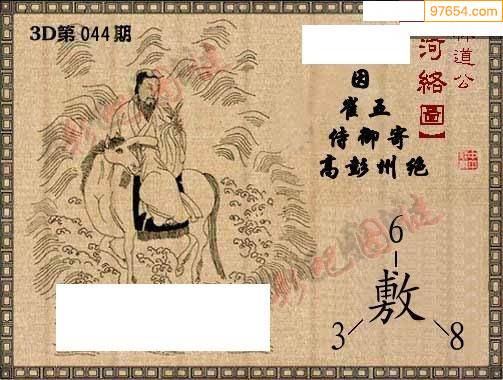 97654.com
3D第044期
道公
河络圖】
因
崔五
侍御寄
高彭州绝
6
敷
3 8